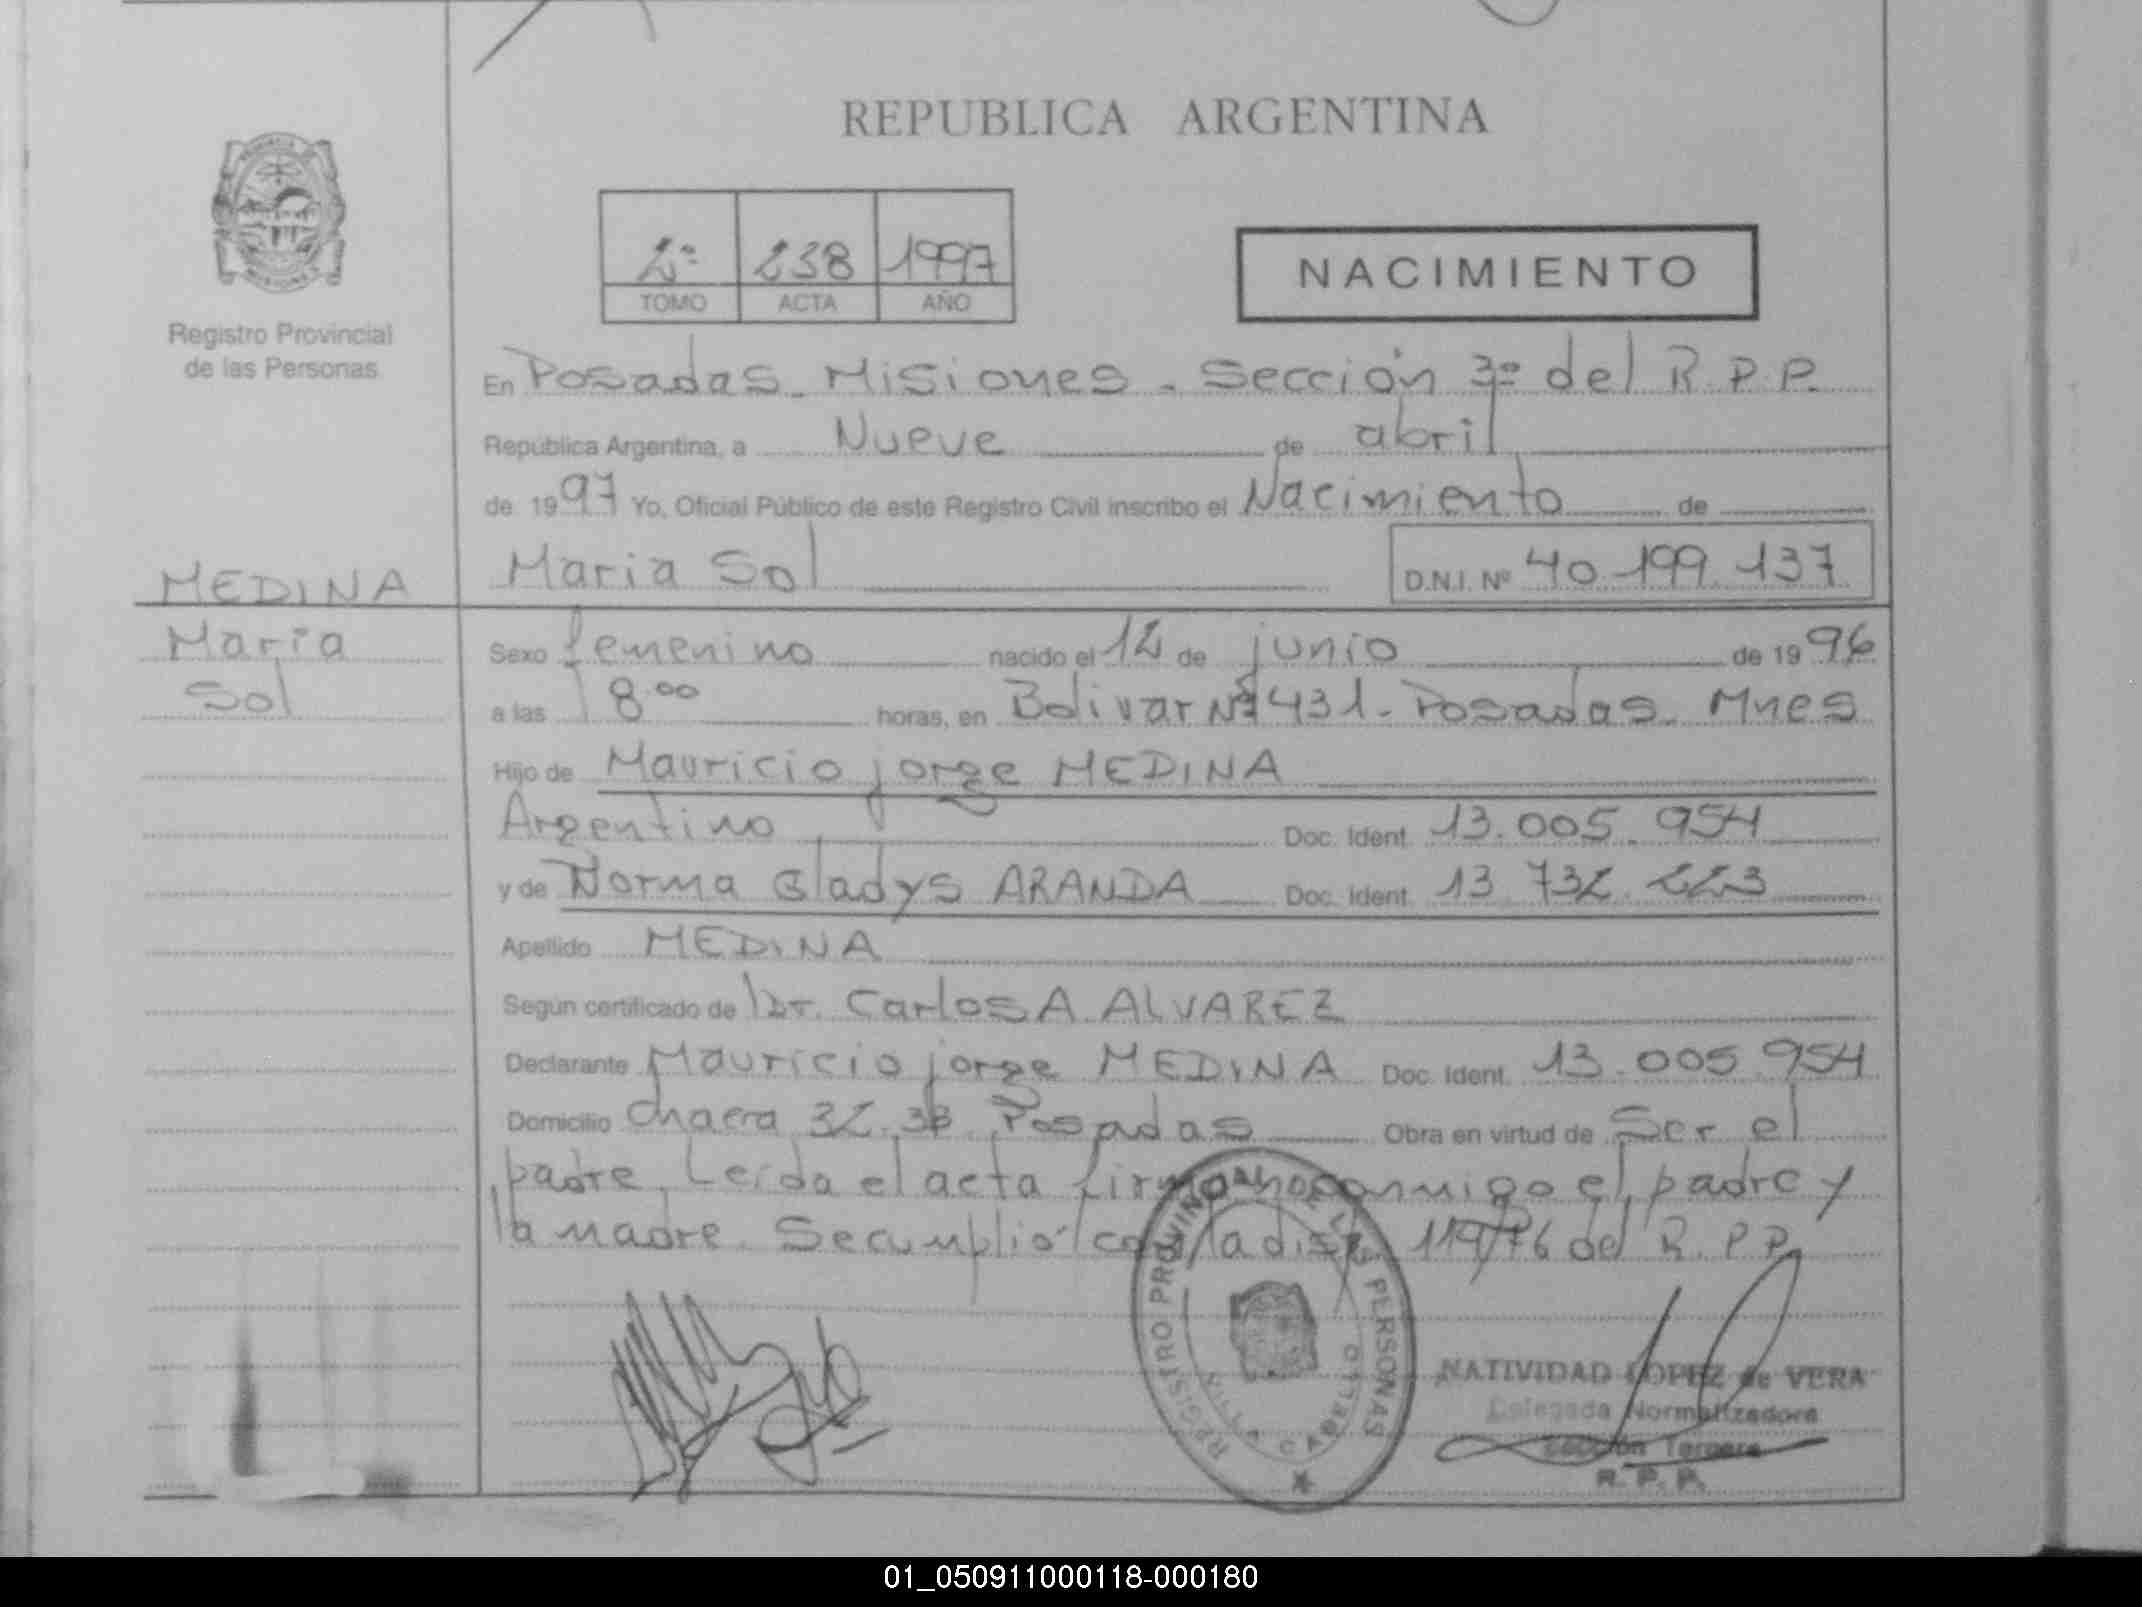 REPUBLICA ARGENTINA
Registro Provincial
de las Personas
2º 238 1997
TOMO ACTA AÑO
NACIMIENTO
En Posadas - Misiones - Sección 3º del R.P.P.
República Argentina, a Nueve de abril
de 1997 Yo, Oficial Público de este Registro Civil inscribo el Nacimiento de
Maria Sol D.N.I. Nº 40.199.137
MEDINA
Maria
Sol
Sexo femenino nacido el 12 de junio de 1996
a las 8.00 horas, en Bolivar Nº 431 - Posadas - Mnes
Hijo de Mauricio jorge MEDINA
Argentino Doc. Ident. 13.005.954
y de Norma Gladys ARANDA Doc. Ident. 13.732.223
Apellido MEDINA
Según certificado de Dr. Carlos A. ALVAREZ
Declarante Mauricio jorge MEDINA Doc. Ident. 13.005.954
Domicilio Chacra 32.33 Posadas Obra en virtud de Ser el
padre. Leída el acta conmigo el padre y
la madre. Se cumplió con la disp. 119/76 del R.P.P.
REGISTRO PROVINCIAL DE LAS PERSONAS
VILLA CABELLO
NATIVIDAD LOPEZ de VERA
Delegada Normalizadora
Sección Tercera
R. P. P.
01_050911000118-000180